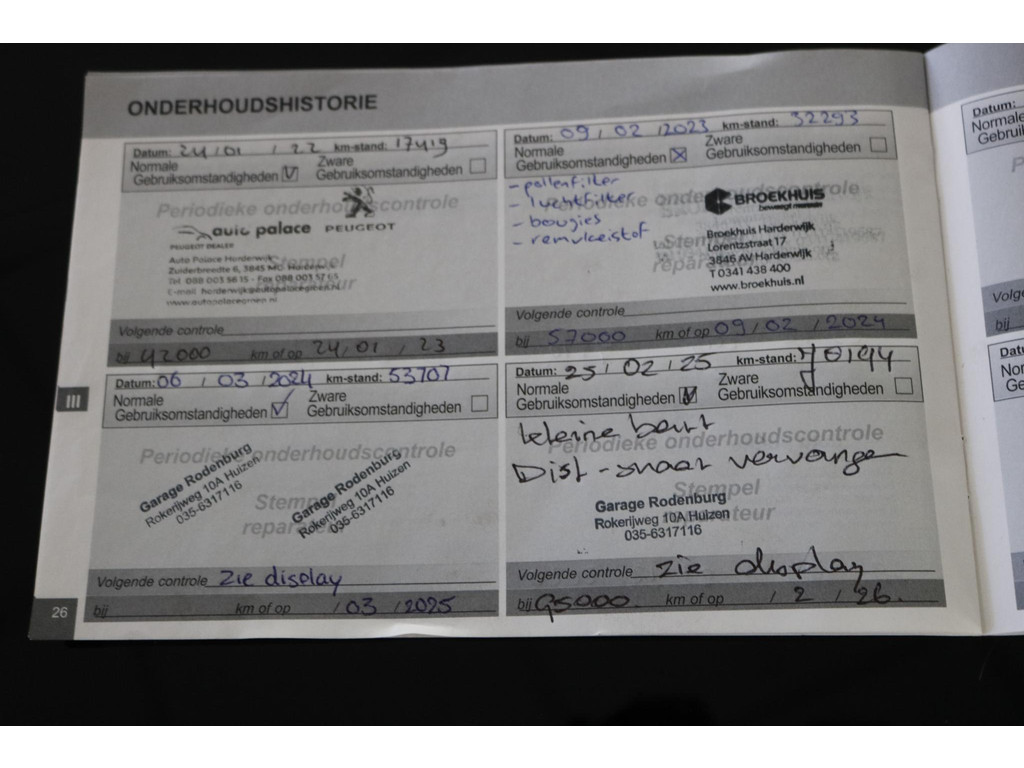 ONDERHOUDSHISTORIE
Datum: 24/01/22 km-stand: 17419
Normale Gebruiksomstandigheden
Zware Gebruiksomstandigheden
Periodieke onderhoudscontrole
auto palace PEUGEOT
PEUGEOT DEALER
Auto Palace Harderwijk
Zuiderbreedte 6, 3845 MG Harderwijk
Stempel
Volgende controle
bij 42000 km of op 24/01/23
Datum: 09/02/2023 km-stand: 32293
Normale Gebruiksomstandigheden
Zware Gebruiksomstandigheden
- pollenfilter
- luchtfilter
- bougies
- remvloeistof
Periodieke onderhoudscontrole
BROEKHUIS
beweegt mensen
Broekhuis Harderwijk
Lorentzstraat 17
3846 AV Harderwijk
T 0341 438 400
www.broekhuis.nl
Stempel
reparateur
Volgende controle
bij 57000 km of op 09/02/2024
Datum: 06/03/2024 km-stand: 53707
Normale Gebruiksomstandigheden
Zware Gebruiksomstandigheden
Periodieke onderhoudscontrole
Garage Rodenburg
Rokerijweg 10A Huizen
035-6317116
Garage Rodenburg
Rokerijweg 10A Huizen
035-6317116
Stempel
reparateur
Volgende controle zie display
bij km of op /03/2025
Datum: 25/02/25 km-stand: 70194
Normale Gebruiksomstandigheden
Zware Gebruiksomstandigheden
kleine beurt
Periodieke onderhoudscontrole
Dist-snaar vervangen
Stempel
reparateur
Garage Rodenburg
Rokerijweg 10A Huizen
035-6317116
Volgende controle zie display
bij 95000 km of op /2/26.
III
26
Datum:
Normale